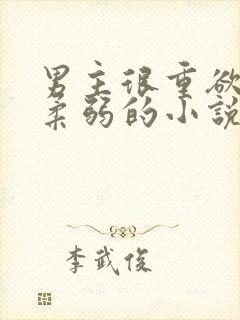 男主很重欲
柔弱的小說
李武俊